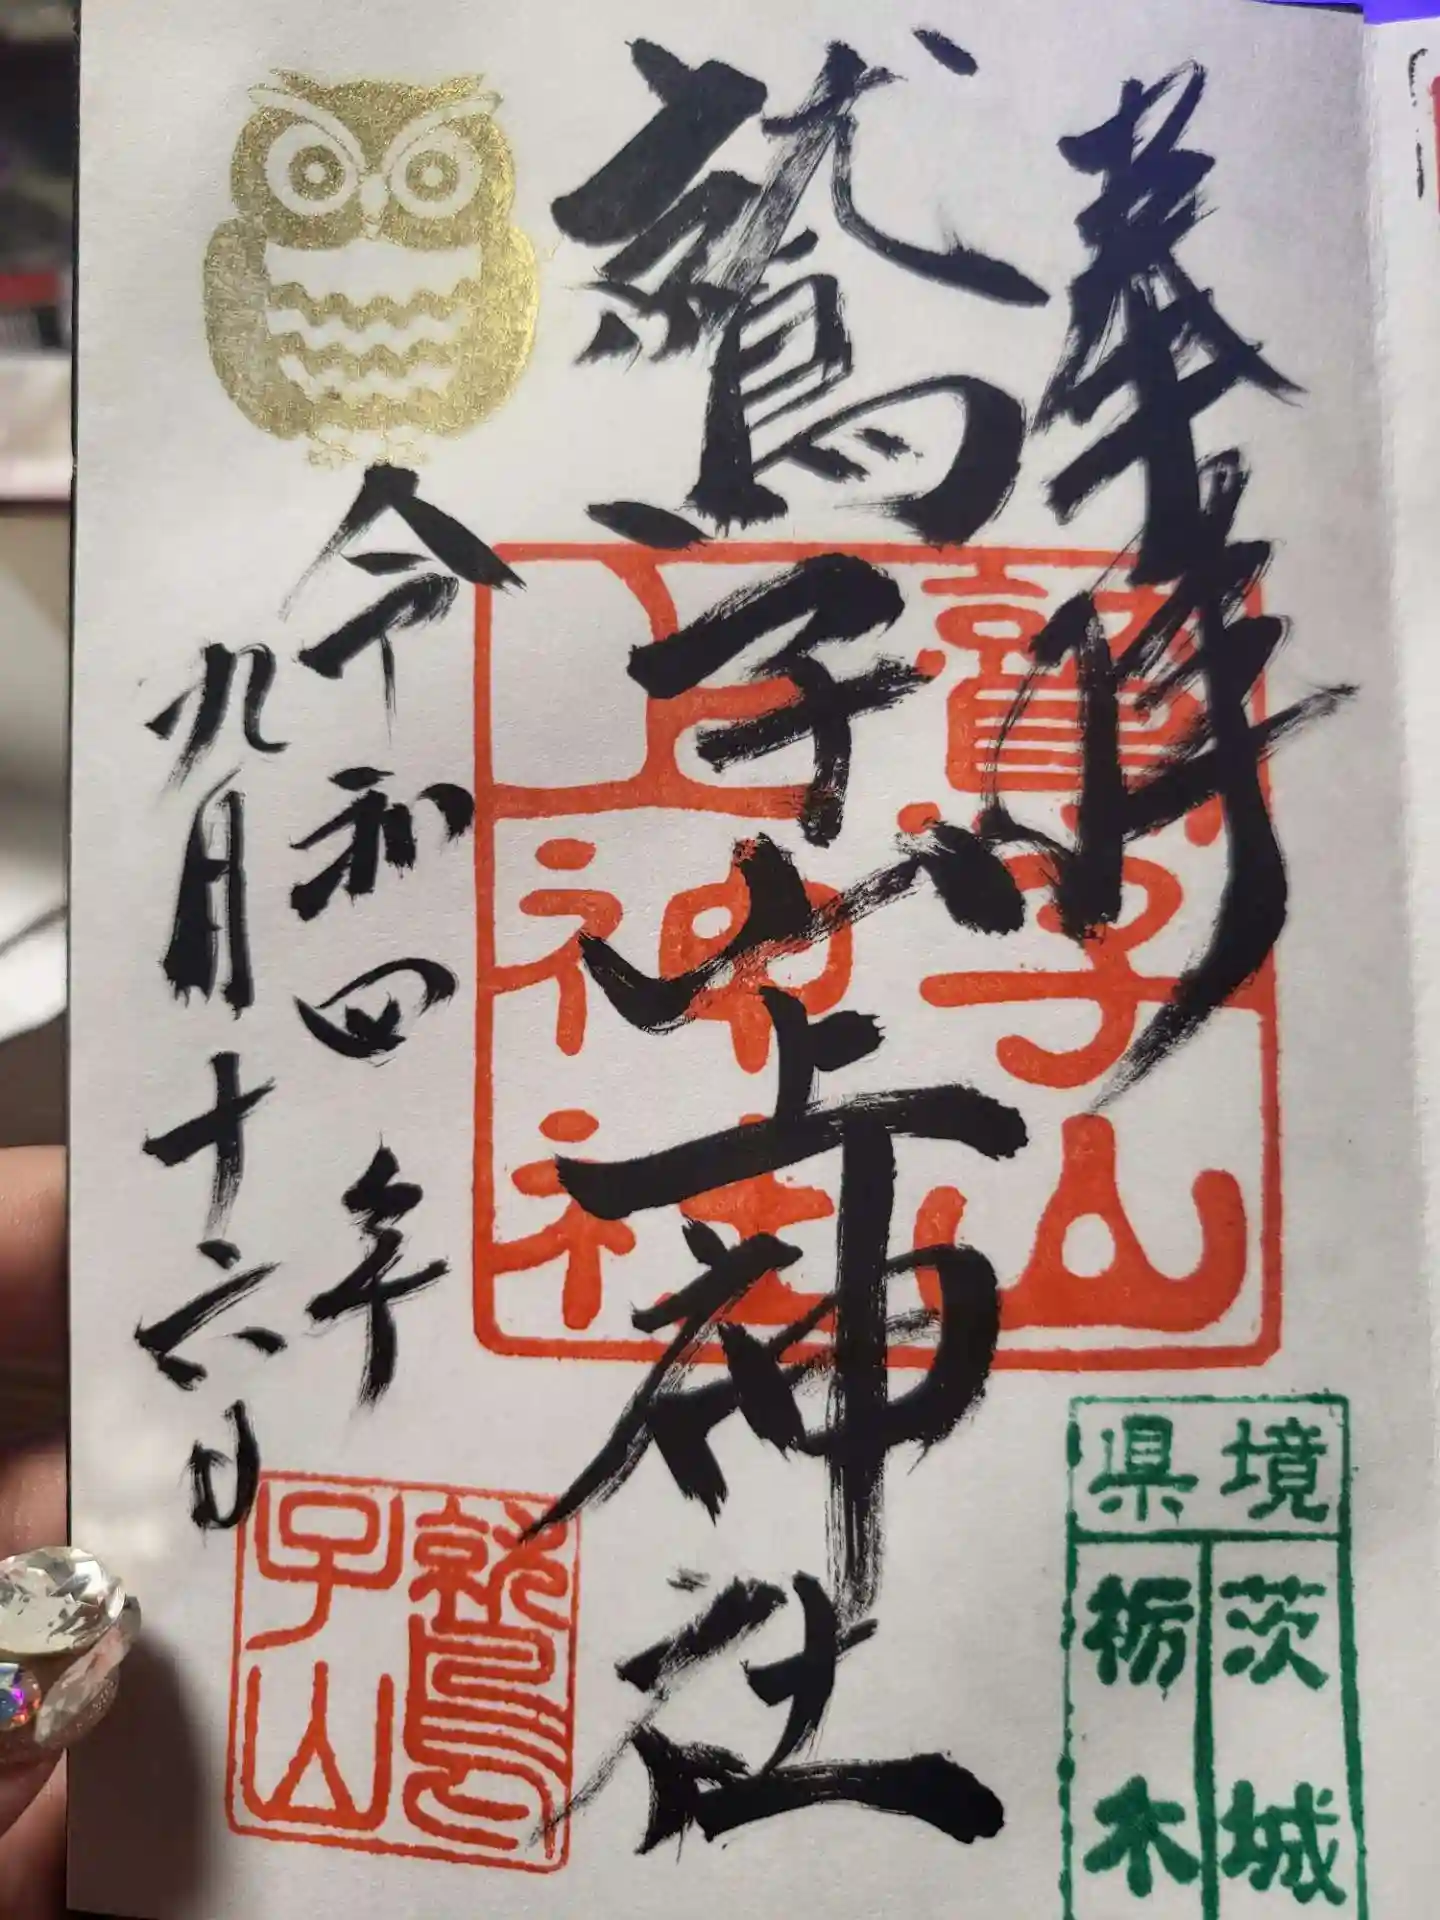 奉拝
鷲子山上神社
令和四年
九月十六日
鷲子山
上神社
鷲子山
県境
茨城
栃木